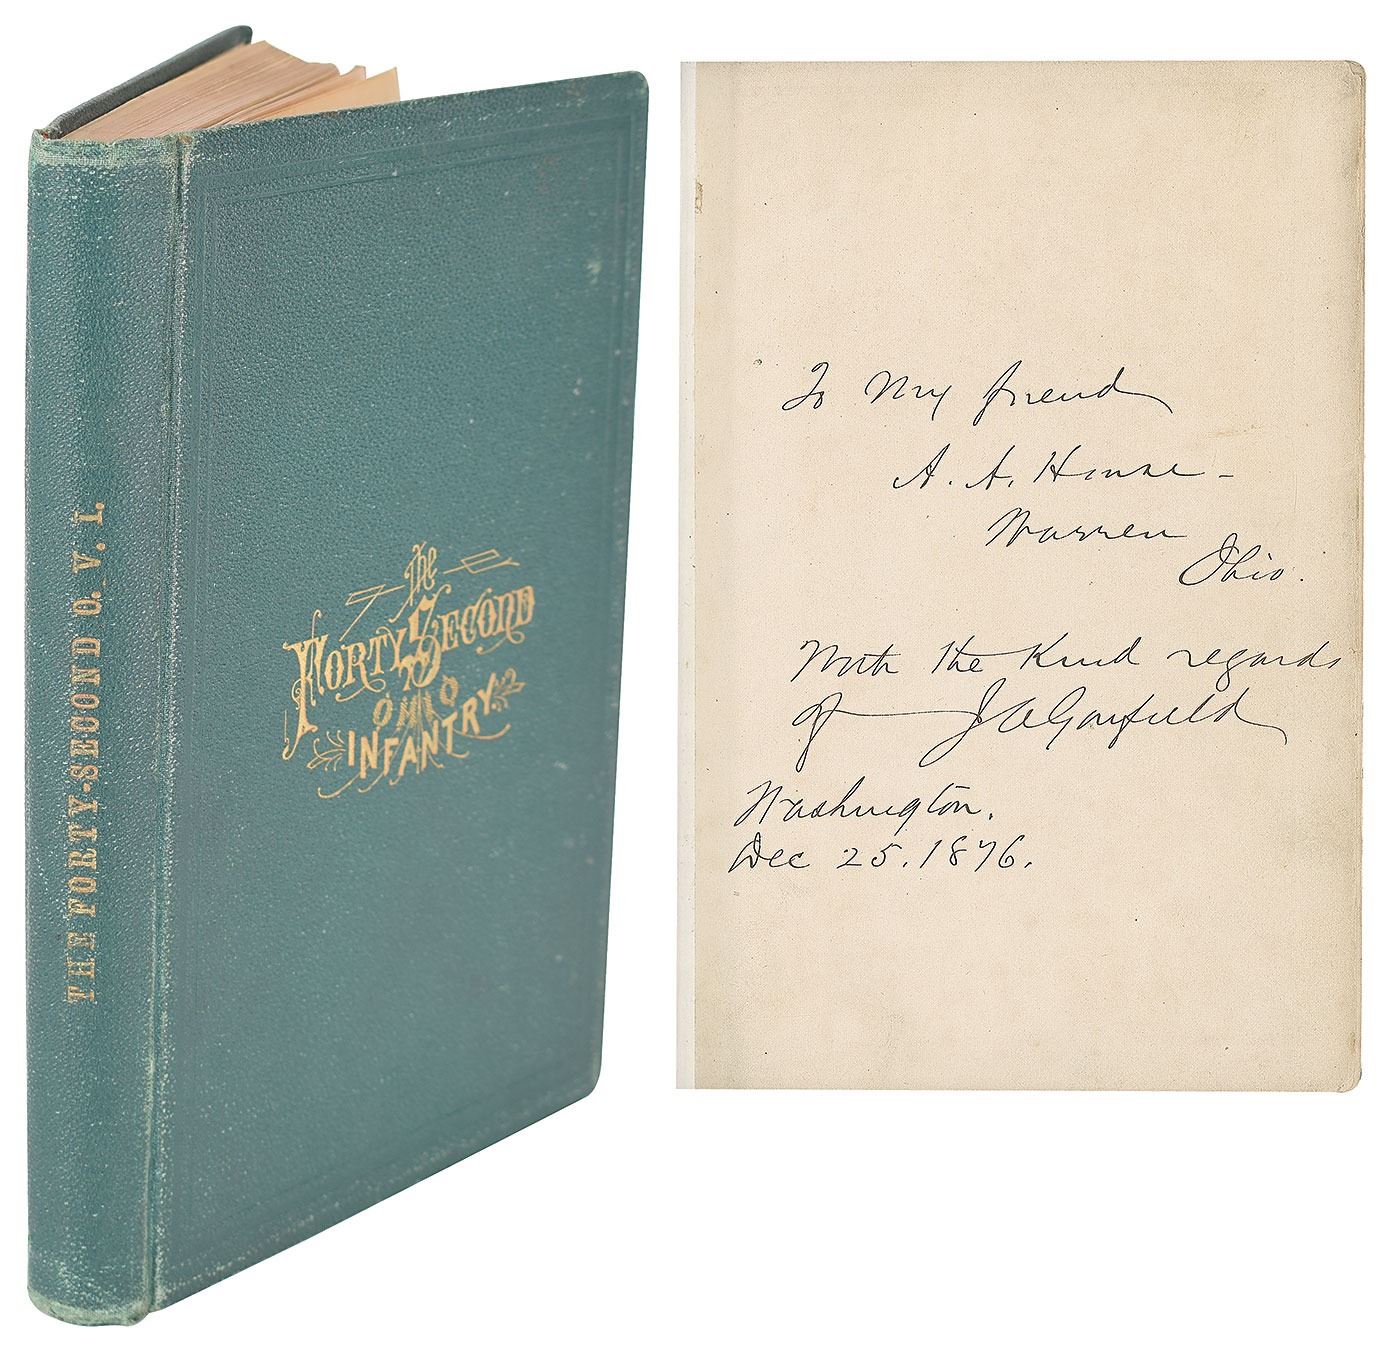 THE FORTY-SECOND O. V. I.
The
FORTY SECOND
OHIO
INFANTRY
To My friend
A. A. House -
Warren
Ohio.
With the Kind regards
of J A Garfield
Washington.
Dec 25. 1876.